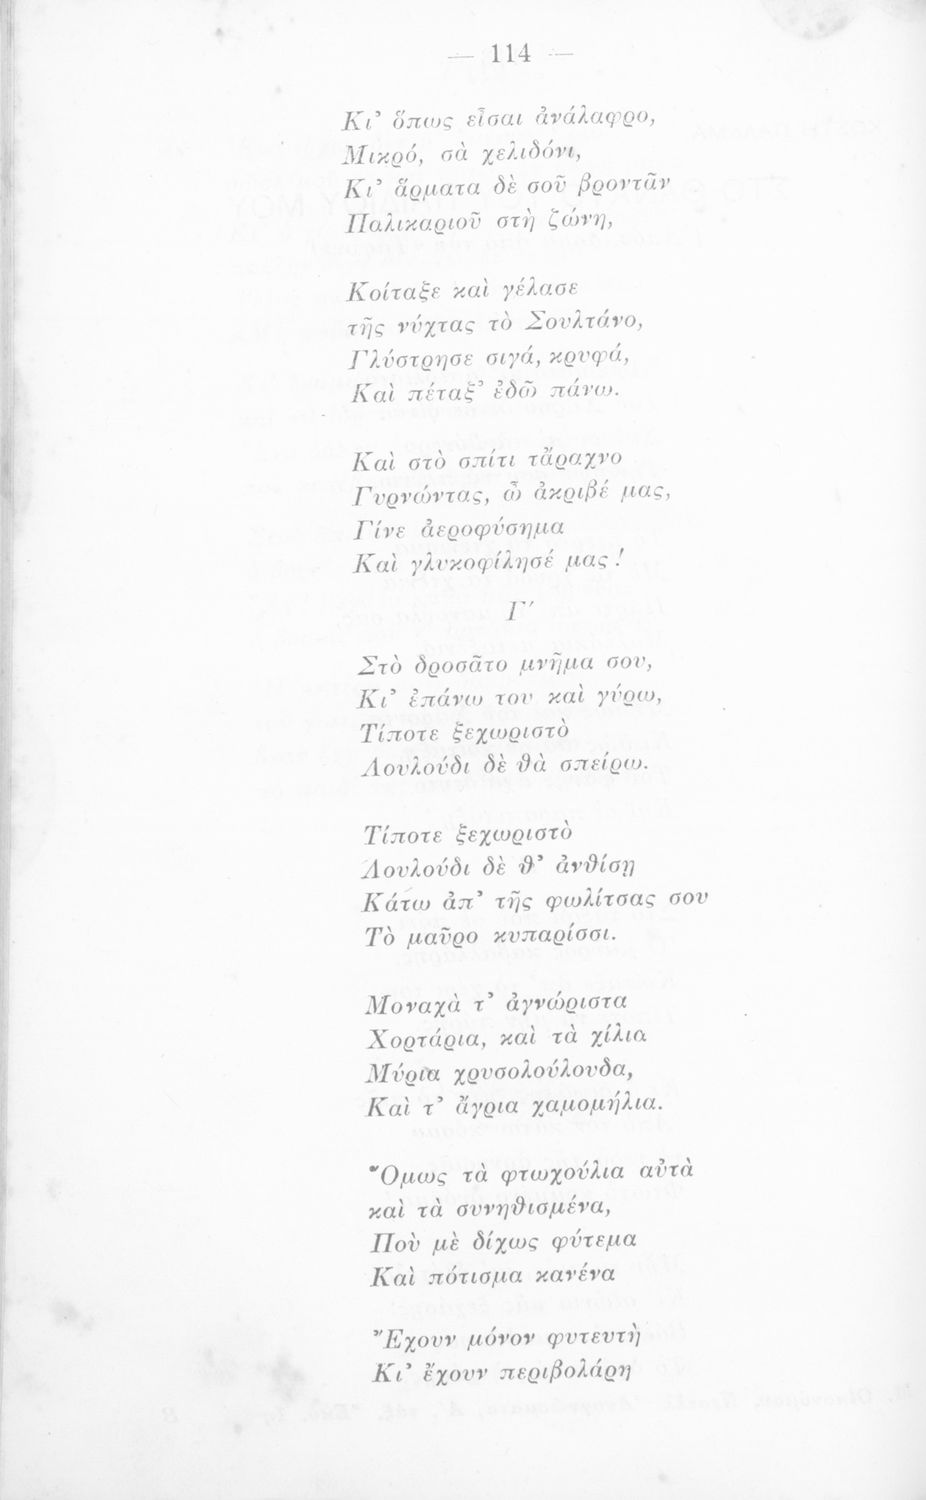 — 114 —
Κι’ ὅπως εἶσαι ἀνάλαφρο,
Μικρό, σὰ χελιδόνι,
Κι’ ἄρματα δὲ σοῦ βροντᾶν
Παλικαριοῦ στὴ ζώνη,
Κοίταξε καὶ γέλασε
τῆς νύχτας τὸ Σουλτάνο,
Γλύστρησε σιγά, κρυφά,
Καὶ πέταξ’ ἐδῶ πάνω.
Καὶ στὸ σπίτι τἄραχνο
Γυρνώντας, ὦ ἀκριβέ μας,
Γίνε ἀεροφύσημα
Καὶ γλυκοφίλησέ μας!
Γ′
Στὸ δροσᾶτο μνῆμα σου,
Κι’ ἐπάνω του καὶ γύρω,
Τίποτε ξεχωριστὸ
Λουλούδι δὲ θὰ σπείρω.
Τίποτε ξεχωριστὸ
Λουλούδι δὲ θ’ ἀνθίσῃ
Κάτω ἀπ’ τῆς φωλίτσας σου
Τὸ μαῦρο κυπαρίσσι.
Μοναχὰ τ’ ἀγνώριστα
Χορτάρια, καὶ τὰ χίλια
Μύρια χρυσολούλουδα,
Καὶ τ’ ἄγρια χαμομήλια.
Ὅμως τὰ φτωχούλια αὐτὰ
καὶ τὰ συνηθισμένα,
Ποὺ μὲ δίχως φύτεμα
Καὶ πότισμα κανένα
Ἔχουν μόνον φυτευτὴ
Κι’ ἔχουν περιβολάρη